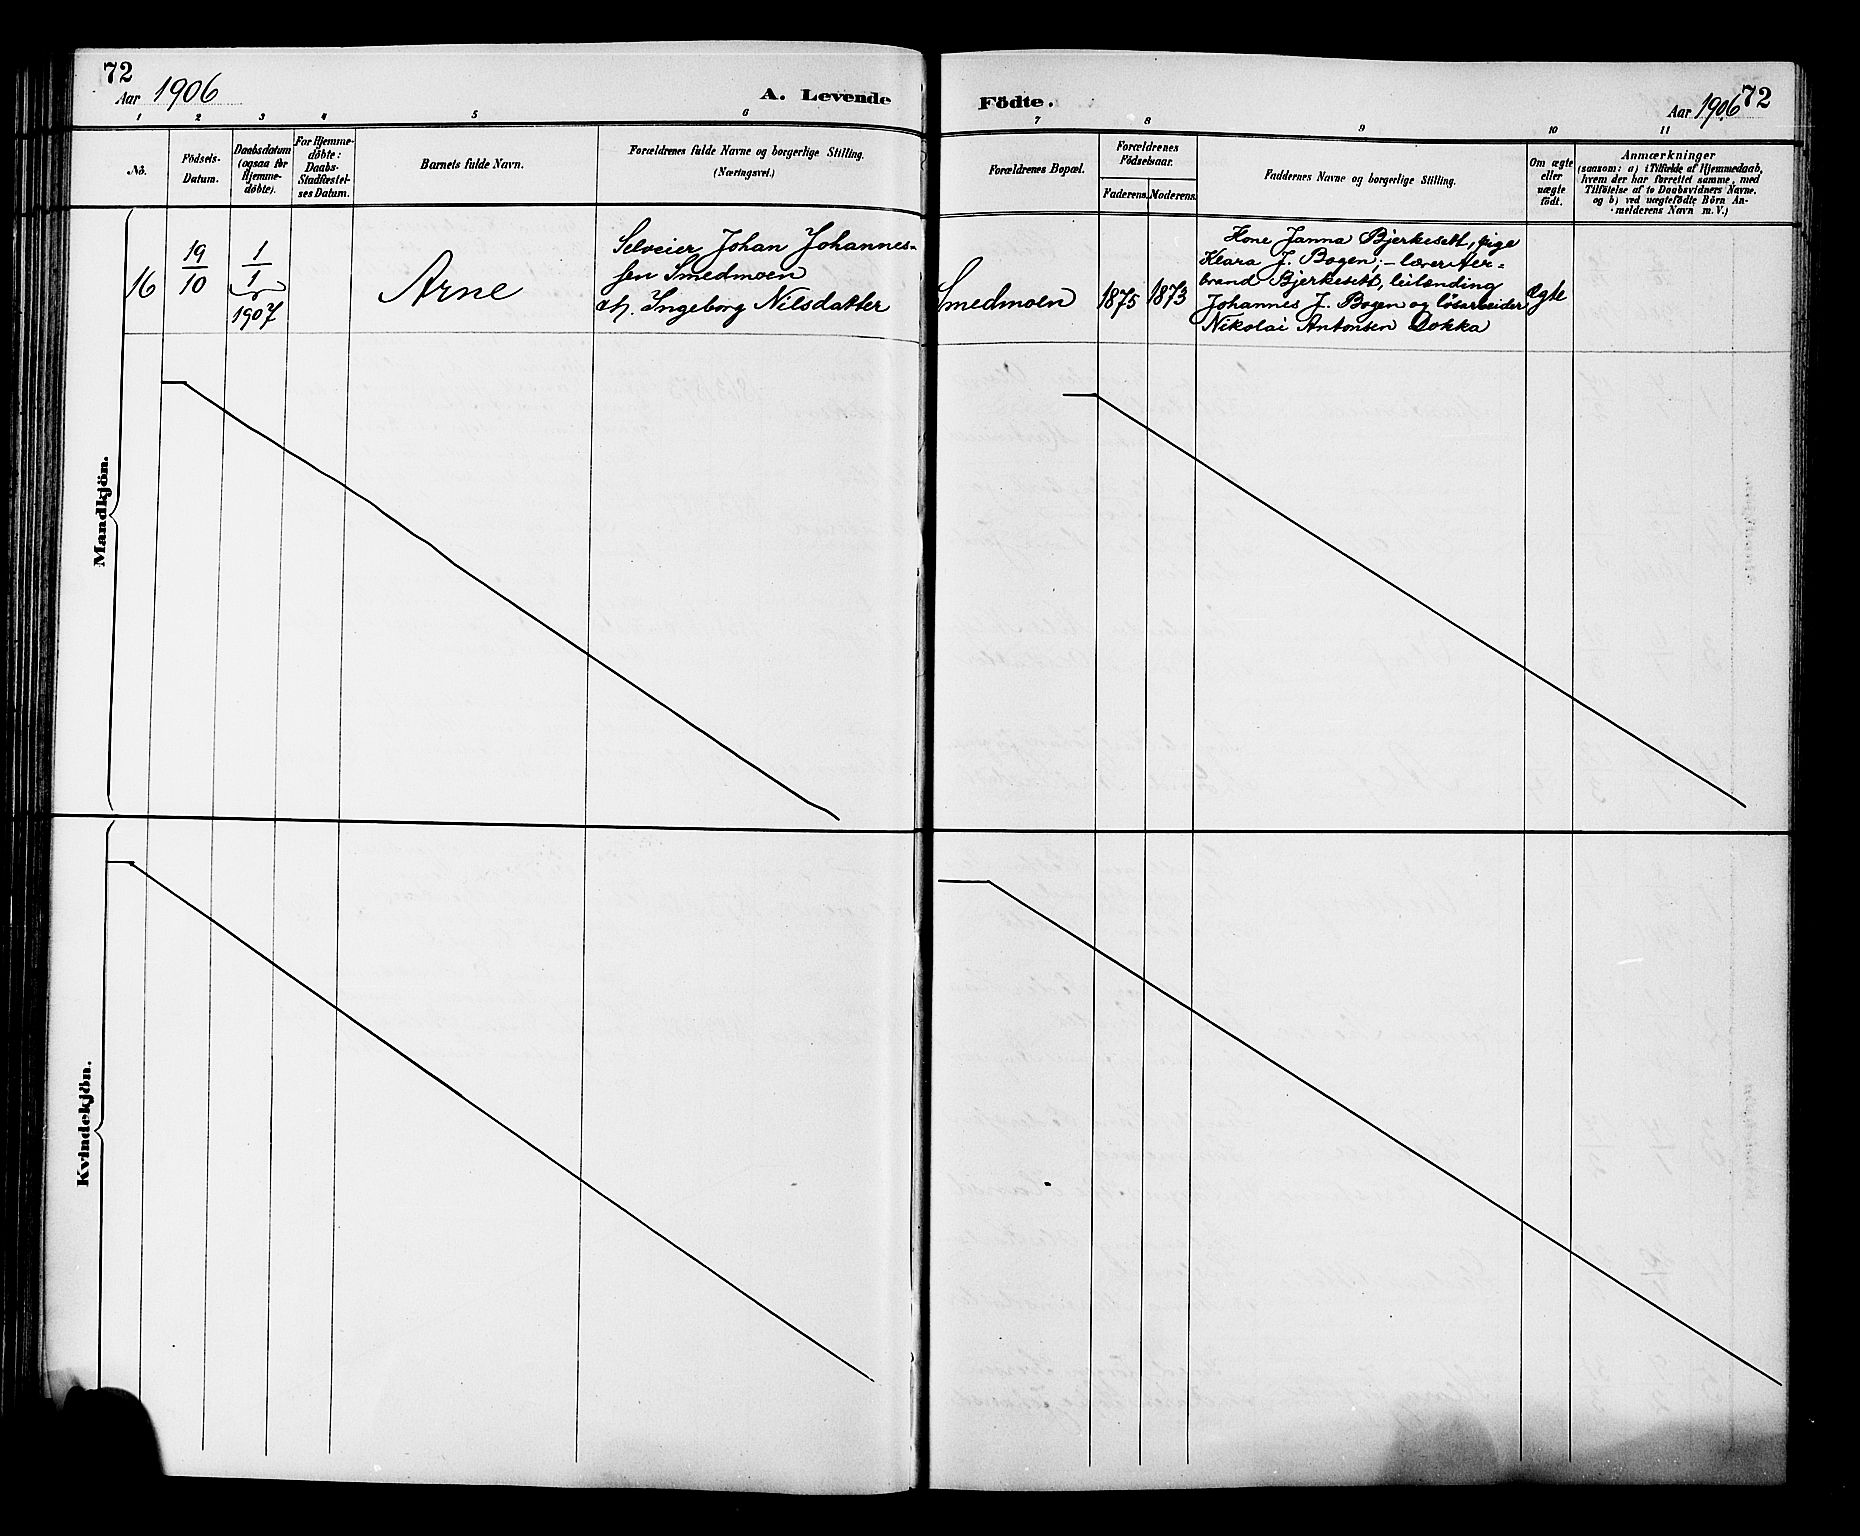 72
Aar 1906
A. Levende
1 2 3 4 5 6
No.
Födsels-
Datum.
Daabsdatum
(ogsaa for
Hjemme-
döbte).
For Hjemme-
döbte:
Daabs-
Stadfæstel-
ses Datum.
Barnets fulde Navn.
Forældrenes fulde Navne og borgerlige Stilling.
(Næringsvei.)
Mandkjön.
16
19
10
1
1
1907
Arne
Selveier Johan Johannes-
sen Smedmoen
o.h. Ingeborg Nilsdatter
Kvindekjön.
Födte.
Aar 1906
72
7 8 9 10 11
Forældrenes Bopæl.
Forældrenes
Födselsaar.
Faderens. Moderens.
Faddernes Navne og borgerlige Stilling.
Om ægte
eller
uægte
födt.
Anmærkninger
(saasom: a) i Tilfælde af Hjemmedaab,
hvem der har forrettet samme, med
Tilföielse af to Daabsvidners Navne.
og b) ved uægtefödte Börn An-
melderens Navn m. V.)
Smedmoen
1875
1873
Kone Janna Bjerkesett, pige
Klara J. Bogen; – lærer Her-
brand Bjerkesett, leilending
Johannes J. Bogen og løsarbeider
Nikolai Antonsen Dokka
Ægte